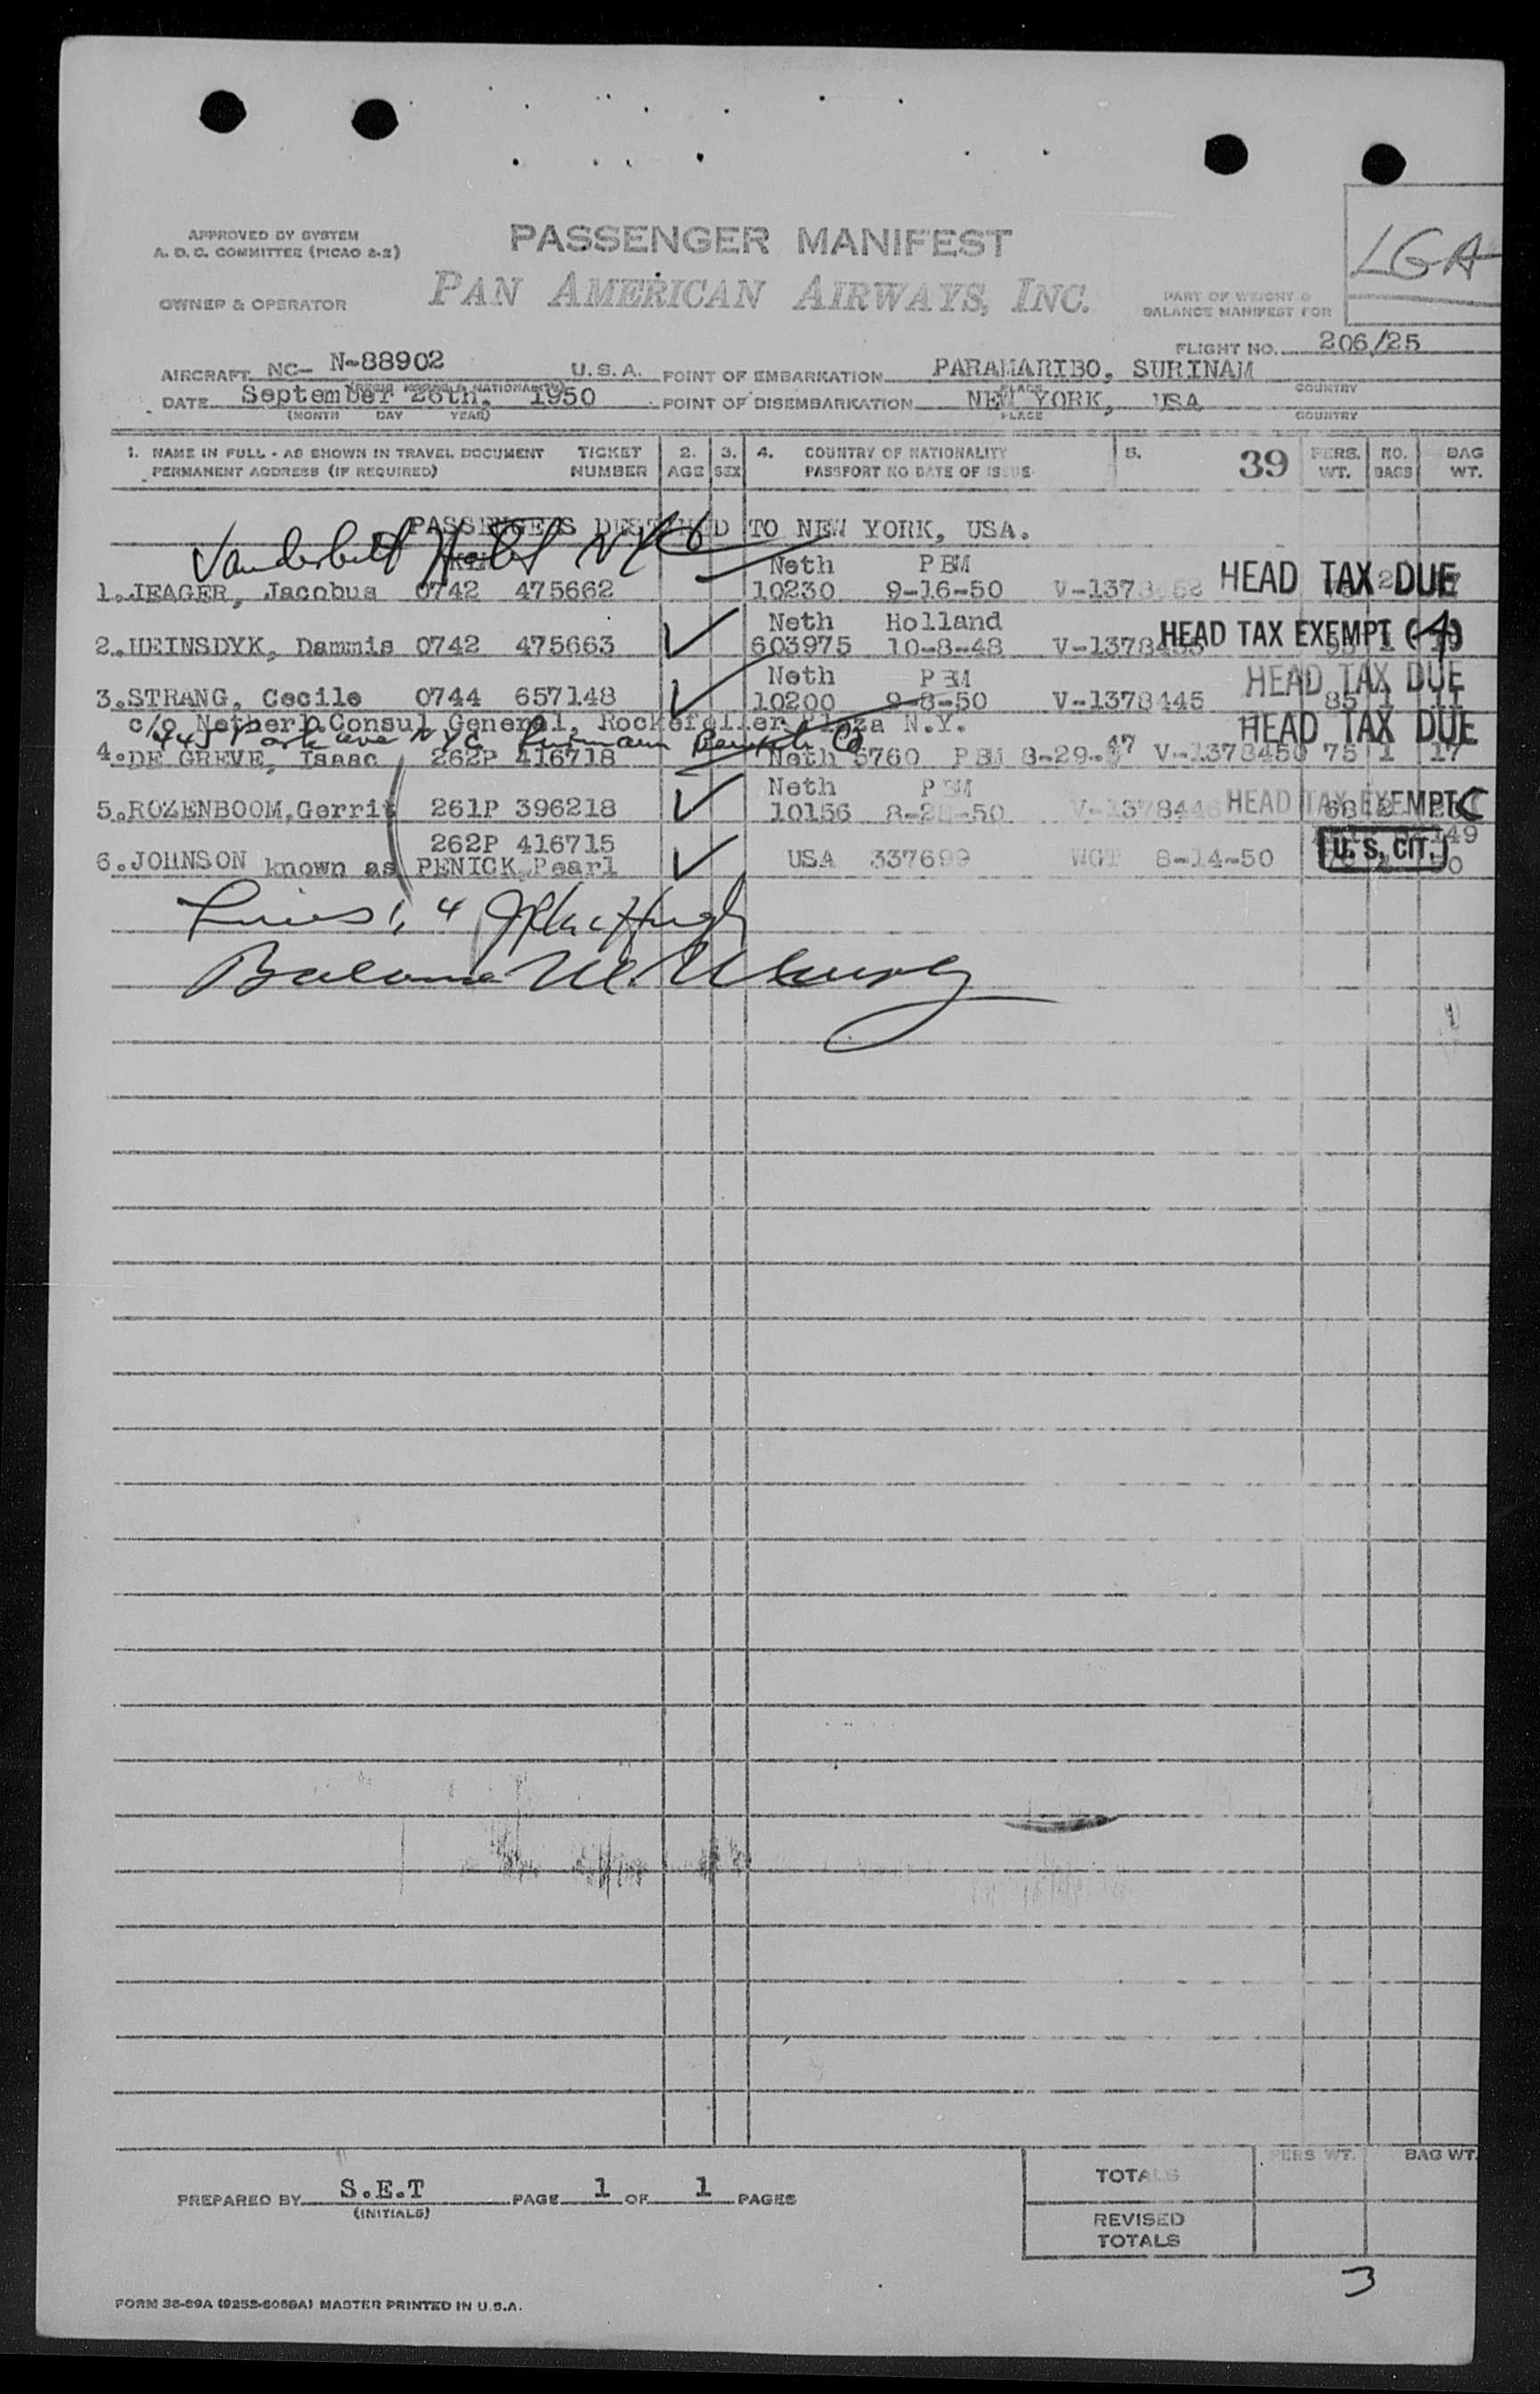 APPROVED BY SYSTEM
A. D. C. COMMITTEE (PICAO 2-2)
PASSENGER MANIFEST
LGA
OWNER & OPERATOR
PAN AMERICAN AIRWAYS, INC.
PART OF WEIGHT &
BALANCE MANIFEST FOR
FLIGHT NO. 206/25
AIRCRAFT NC- N-88902 U.S.A. POINT OF EMBARKATION PARAMARIBO, SURINAM
PLACE COUNTRY
DATE September 26th, 1950 POINT OF DISEMBARKATION NEW YORK, USA
(MONTH DAY YEAR) PLACE COUNTRY
1. NAME IN FULL - AS SHOWN IN TRAVEL DOCUMENT TICKET 2. 3. 4. COUNTRY OF NATIONALITY 5. 39 PERS. NO. BAG
PERMANENT ADDRESS (IF REQUIRED) NUMBER AGE SEX PASSPORT NO DATE OF ISSUE WT. BAGS WT.
PASSENGERS DESTINED TO NEW YORK, USA.
Vanderbilt Hotel NYC
Neth PBM
1. JEAGER, Jacobus 0742 475662 10230 9-16-50 V-1378 HEAD TAX DUE
Neth Holland
2. HEINSDYK, Dammis 0742 475663 603975 10-8-48 V-13784 HEAD TAX EXEMPT (4)
Neth PBM HEAD TAX DUE
3. STRANG, Cecile 0744 657148 10200 9-8-50 V-1378445 85 1 11
c/o Netherl. Consul General, Rockefeller Plaza N.Y. HEAD TAX DUE
Park ave NYC
4. DE GREVE, Isaac 262P 416718 Neth 5760 PBM 8-29-47 V-1378450 75 1 17
Neth PBM
5. ROZENBOOM, Gerrit 261P 396218 10156 8-28-50 V-137844 HEAD TAX EXEMPT C
262P 416715
6. JOHNSON known as PENICK, Pearl USA 337699 8-14-50 U. S. CIT.
Lines 1, 4
Balance
PREPARED BY S.E.T PAGE 1 OF 1 PAGES
(INITIALS)
PERS WT. BAG WT.
TOTALS
REVISED
TOTALS
3
FORM 38-69A (9253-6069A) MASTER PRINTED IN U.S.A.